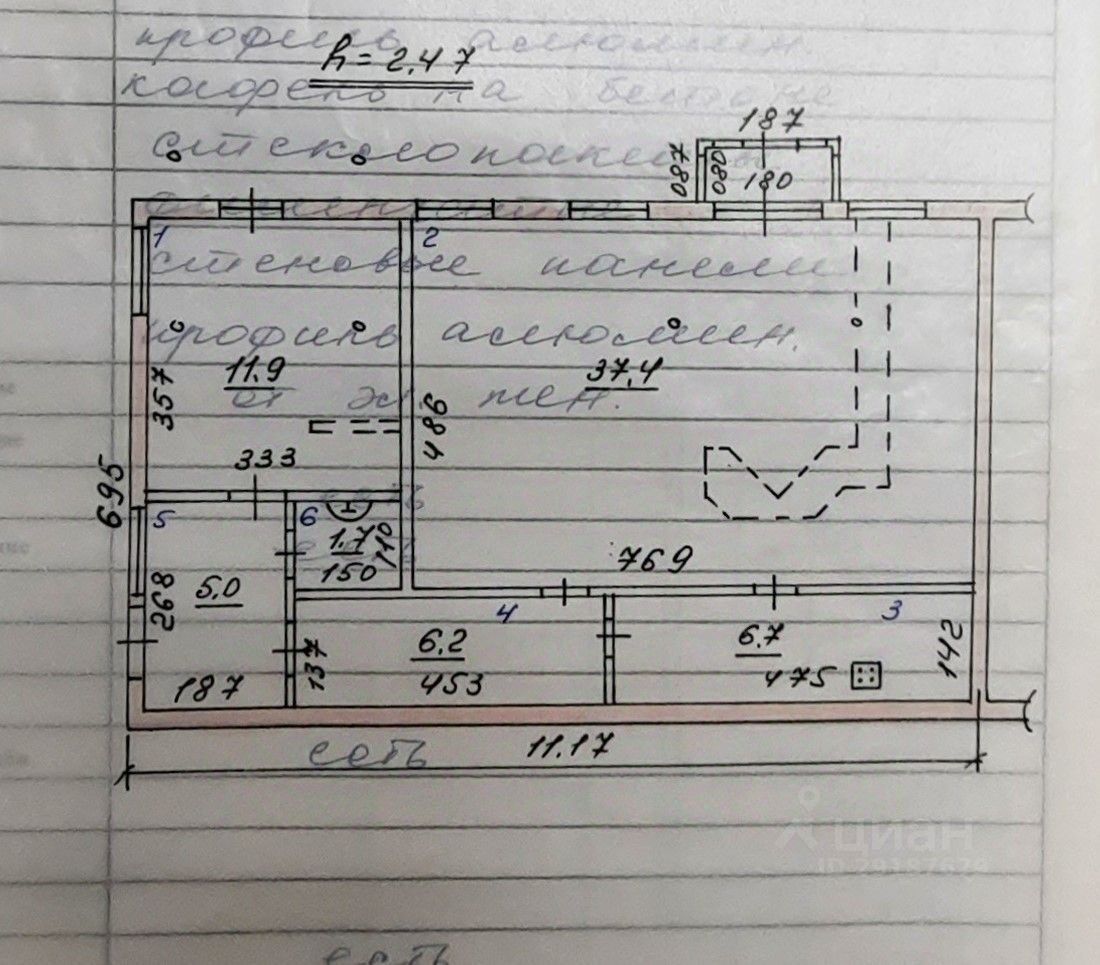 профиль алюмин
h = 2.47
кафель на бетоне
187
стеклопакеты
080 080 180
1 2
стеновые панели
профиль алюмин.
11.9 37.4
357
486
333
695
есть
5 6
1.7 110
150
769
268 5.0
4 3
6.2 6.7
137 453 475 142
187
есть 11.17
циан
ID:29187676
есть